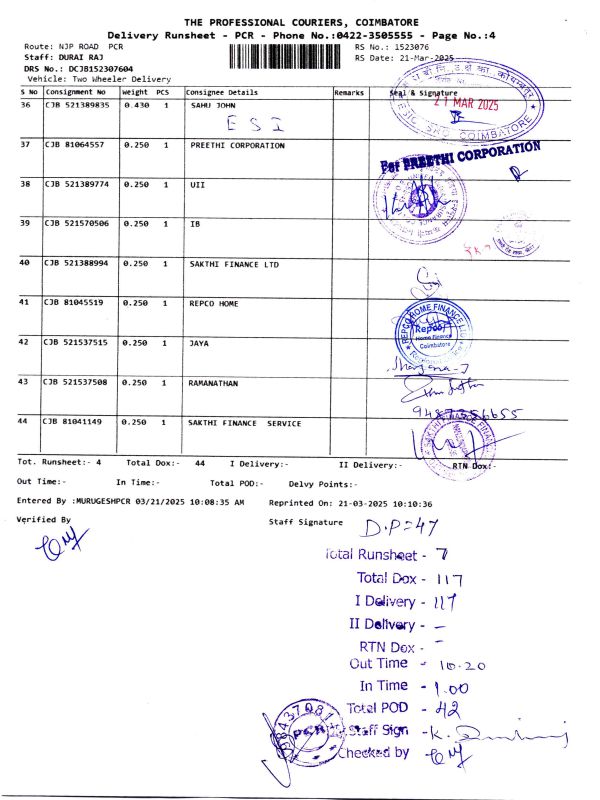 THE PROFESSIONAL COURIERS, COIMBATORE
Delivery Runsheet - PCR - Phone No.:0422-3505555 - Page No.:4
Route: NJP ROAD PCR RS No.: 1523076
Staff: DURAI RAJ RS Date: 21-Mar-2025
DRS No.: DCJB152307604
Vehicle: Two Wheeler Delivery
S No Consignment No Weight PCS Consignee Details Remarks Seal & Signature
36 CJB 521389835 0.430 1 SAHU JOHN
ESI
21 MAR 2025
COIMBATORE
37 CJB 81064557 0.250 1 PREETHI CORPORATION
For PREETHI CORPORATION
38 CJB 521389774 0.250 1 UII
39 CJB 521570506 0.250 1 IB
40 CJB 521388994 0.250 1 SAKTHI FINANCE LTD
41 CJB 81045519 0.250 1 REPCO HOME
REPCO HOME FINANCE
Repco
Home Finance
Coimbatore
42 CJB 521537515 0.250 1 JAYA
43 CJB 521537508 0.250 1 RAMANATHAN
44 CJB 81041149 0.250 1 SAKTHI FINANCE SERVICE
SAKTHI FINANCE
Tot. Runsheet:- 4 Total Dox:- 44 I Delivery:- II Delivery:- RTN Dox:-
Out Time:- In Time:- Total POD:- Delvy Points:-
Entered By :MURUGESHPCR 03/21/2025 10:08:35 AM Reprinted On: 21-03-2025 10:10:36
Verified By Staff Signature D.P=47
Total Runsheet - 7
Total Dox - 117
I Delivery - 117
II Delivery - –
RTN Dox - –
Out Time - 10.20
In Time - 1.00
Total POD - 42
Staff Sign - K.
Checked by
PCR